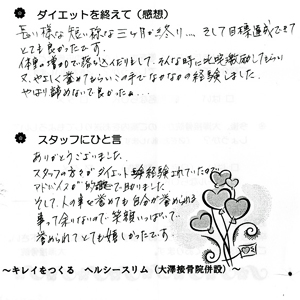 ダイエットを終えて（感想）
長い様な短い様な三ヶ月が終り…、そして目標達成できて
とても良かったです。
体重の増減で落ち込んだりもして、そんな時に叱咤激励してもらい
又、やさしく誉めてもらい この手でなかなかの経験しました。
やはり諦めないで良かったぁ…
スタッフにひと言
ありがとうございました。
スタッフの方々がダイエット経験されていたので
アドバイスが的確で助かりました。
そして、人の事は誉めても自分が誉められる
事って余りないので 笑顔いっぱいで
誉められてとても嬉しかったです。
〜キレイをつくる ヘルシースリム（大澤接骨院併設）〜